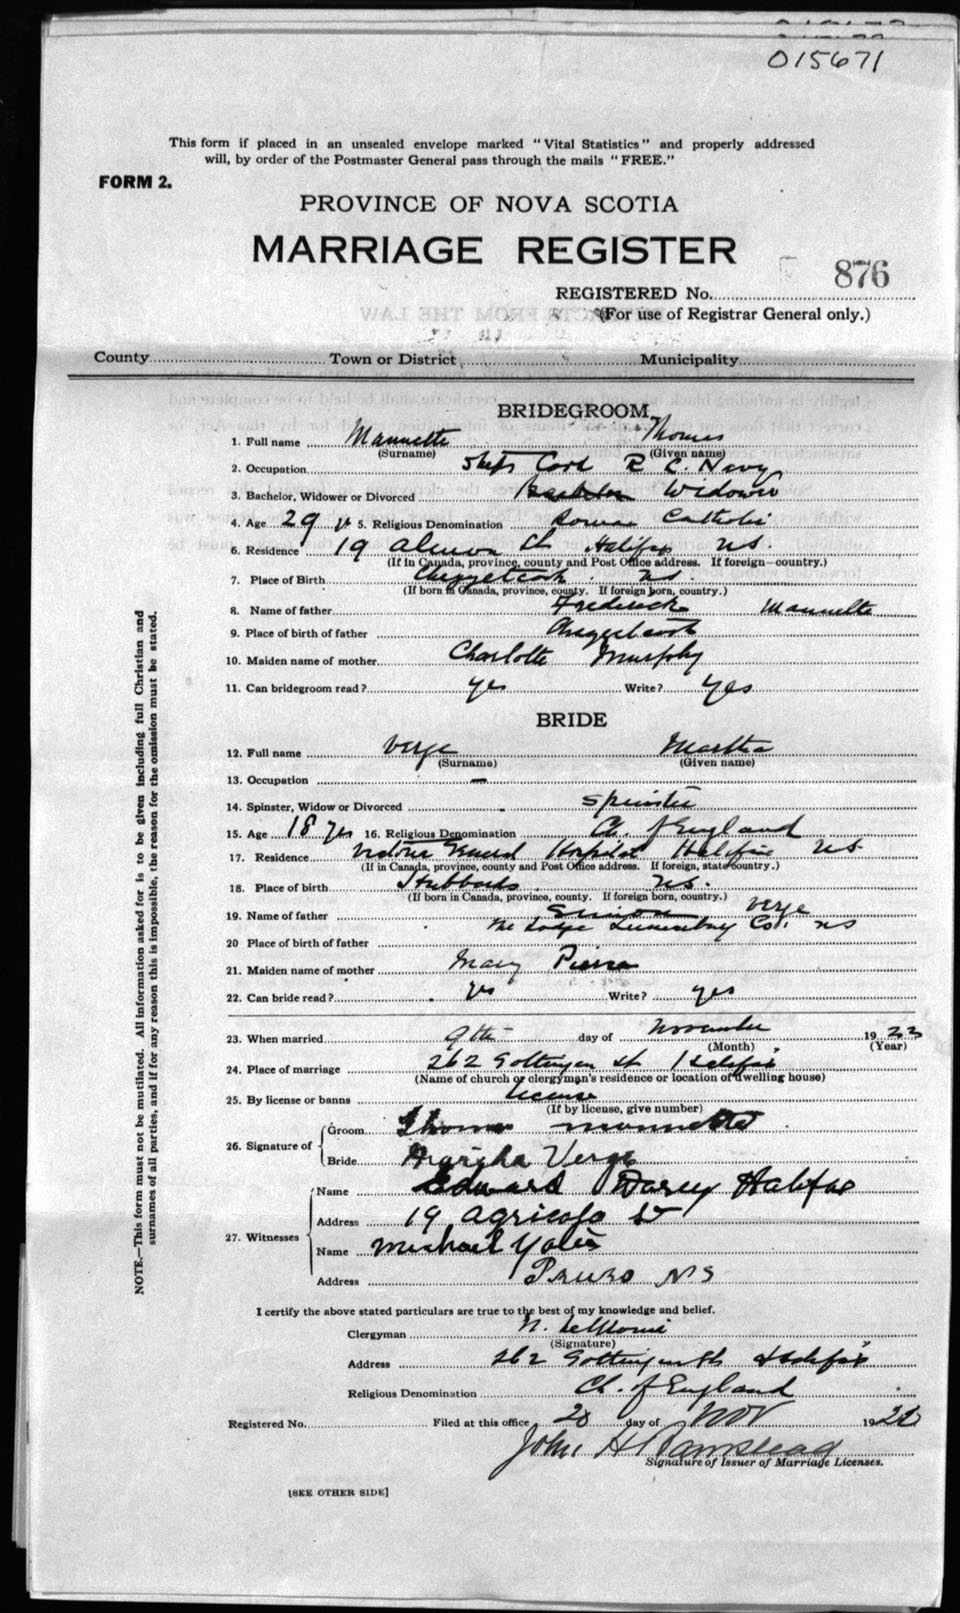 015671
This form if placed in an unsealed envelope marked "Vital Statistics" and properly addressed
will, by order of the Postmaster General pass through the mails "FREE."
FORM 2.
PROVINCE OF NOVA SCOTIA
MARRIAGE REGISTER
876
REGISTERED No.
(For use of Registrar General only.)
County Town or District Municipality
BRIDEGROOM
1. Full name Mannette Thomas
(Surname) (Given name)
2. Occupation Ships Cook R C. Navy
3. Bachelor, Widower or Divorced Widower
4. Age 29 yr 5. Religious Denomination Roman Catholic
6. Residence 19 Almon St Halifax NS.
(If in Canada, province, county and Post Office address. If foreign—country.)
7. Place of Birth Chezzetcook. NS.
(If born in Canada, province, county. If foreign born, country.)
8. Name of father Frederick Mannette
9. Place of birth of father
10. Maiden name of mother Charlotte Murphy
11. Can bridegroom read? yes Write? yes
BRIDE
12. Full name Verge Martha
(Surname) (Given name)
13. Occupation —
14. Spinster, Widow or Divorced Spinster
15. Age 18 yrs 16. Religious Denomination Ch. of England
17. Residence Victoria General Hospital Halifax NS.
(If in Canada, province, county and Post Office address. If foreign, state country.)
18. Place of birth Hubbards. NS.
(If born in Canada, province, county. If foreign born, country.)
19. Name of father Simeon Verge
The Lodge Lunenburg Co. NS
20 Place of birth of father
21. Maiden name of mother Mary
22. Can bride read? yes Write? yes
23. When married 9th day of November 1923
(Month) (Year)
24. Place of marriage 262 Gottingen St Halifax
(Name of church or clergyman's residence or location of dwelling house)
25. By license or banns License
(If by license, give number)
26. Signature of Groom Thomas Mannette
Bride Martha Verge
27. Witnesses Name Edward Darcy Halifax
Address 19 Agricola St
Name Michael
Address Truro NS
I certify the above stated particulars are true to the best of my knowledge and belief.
Clergyman N.
(Signature)
Address 262 Gottingen St Halifax
Religious Denomination Ch. of England
Registered No. Filed at this office 20 day of Nov 19
John H
Signature of Issuer of Marriage Licenses.
[SEE OTHER SIDE]
NOTE.—This form must not be mutilated. All information asked for is to be given including full Christian and
surnames of all parties, and if for any reason this is impossible, the reason for the omission must be stated.